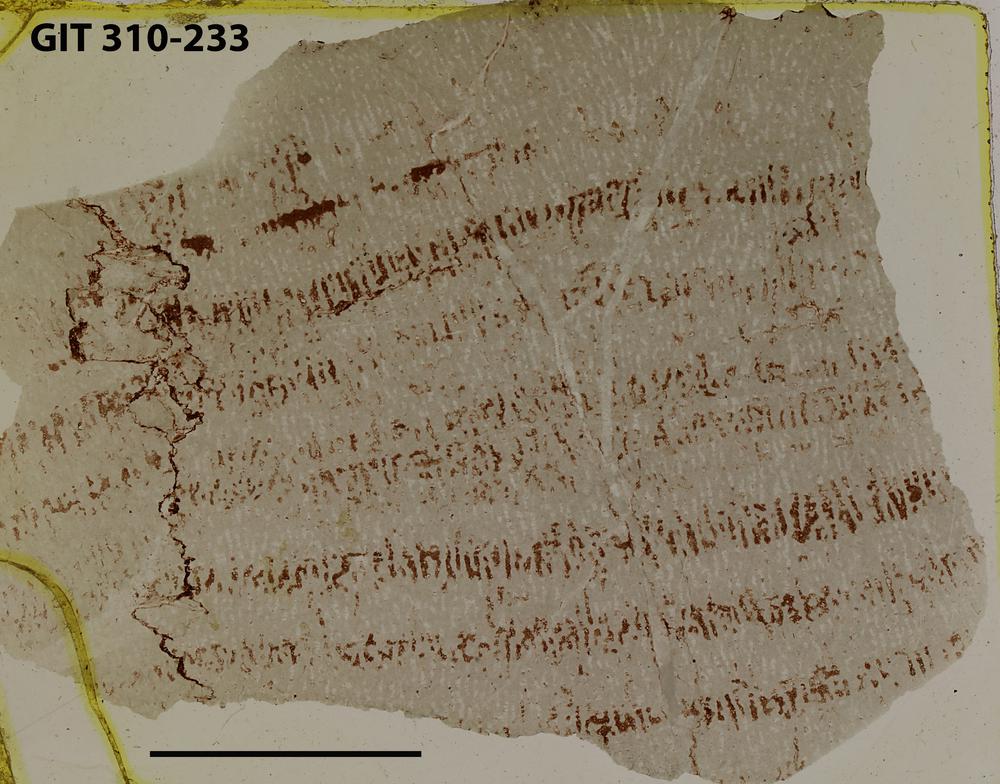 GIT 310-233